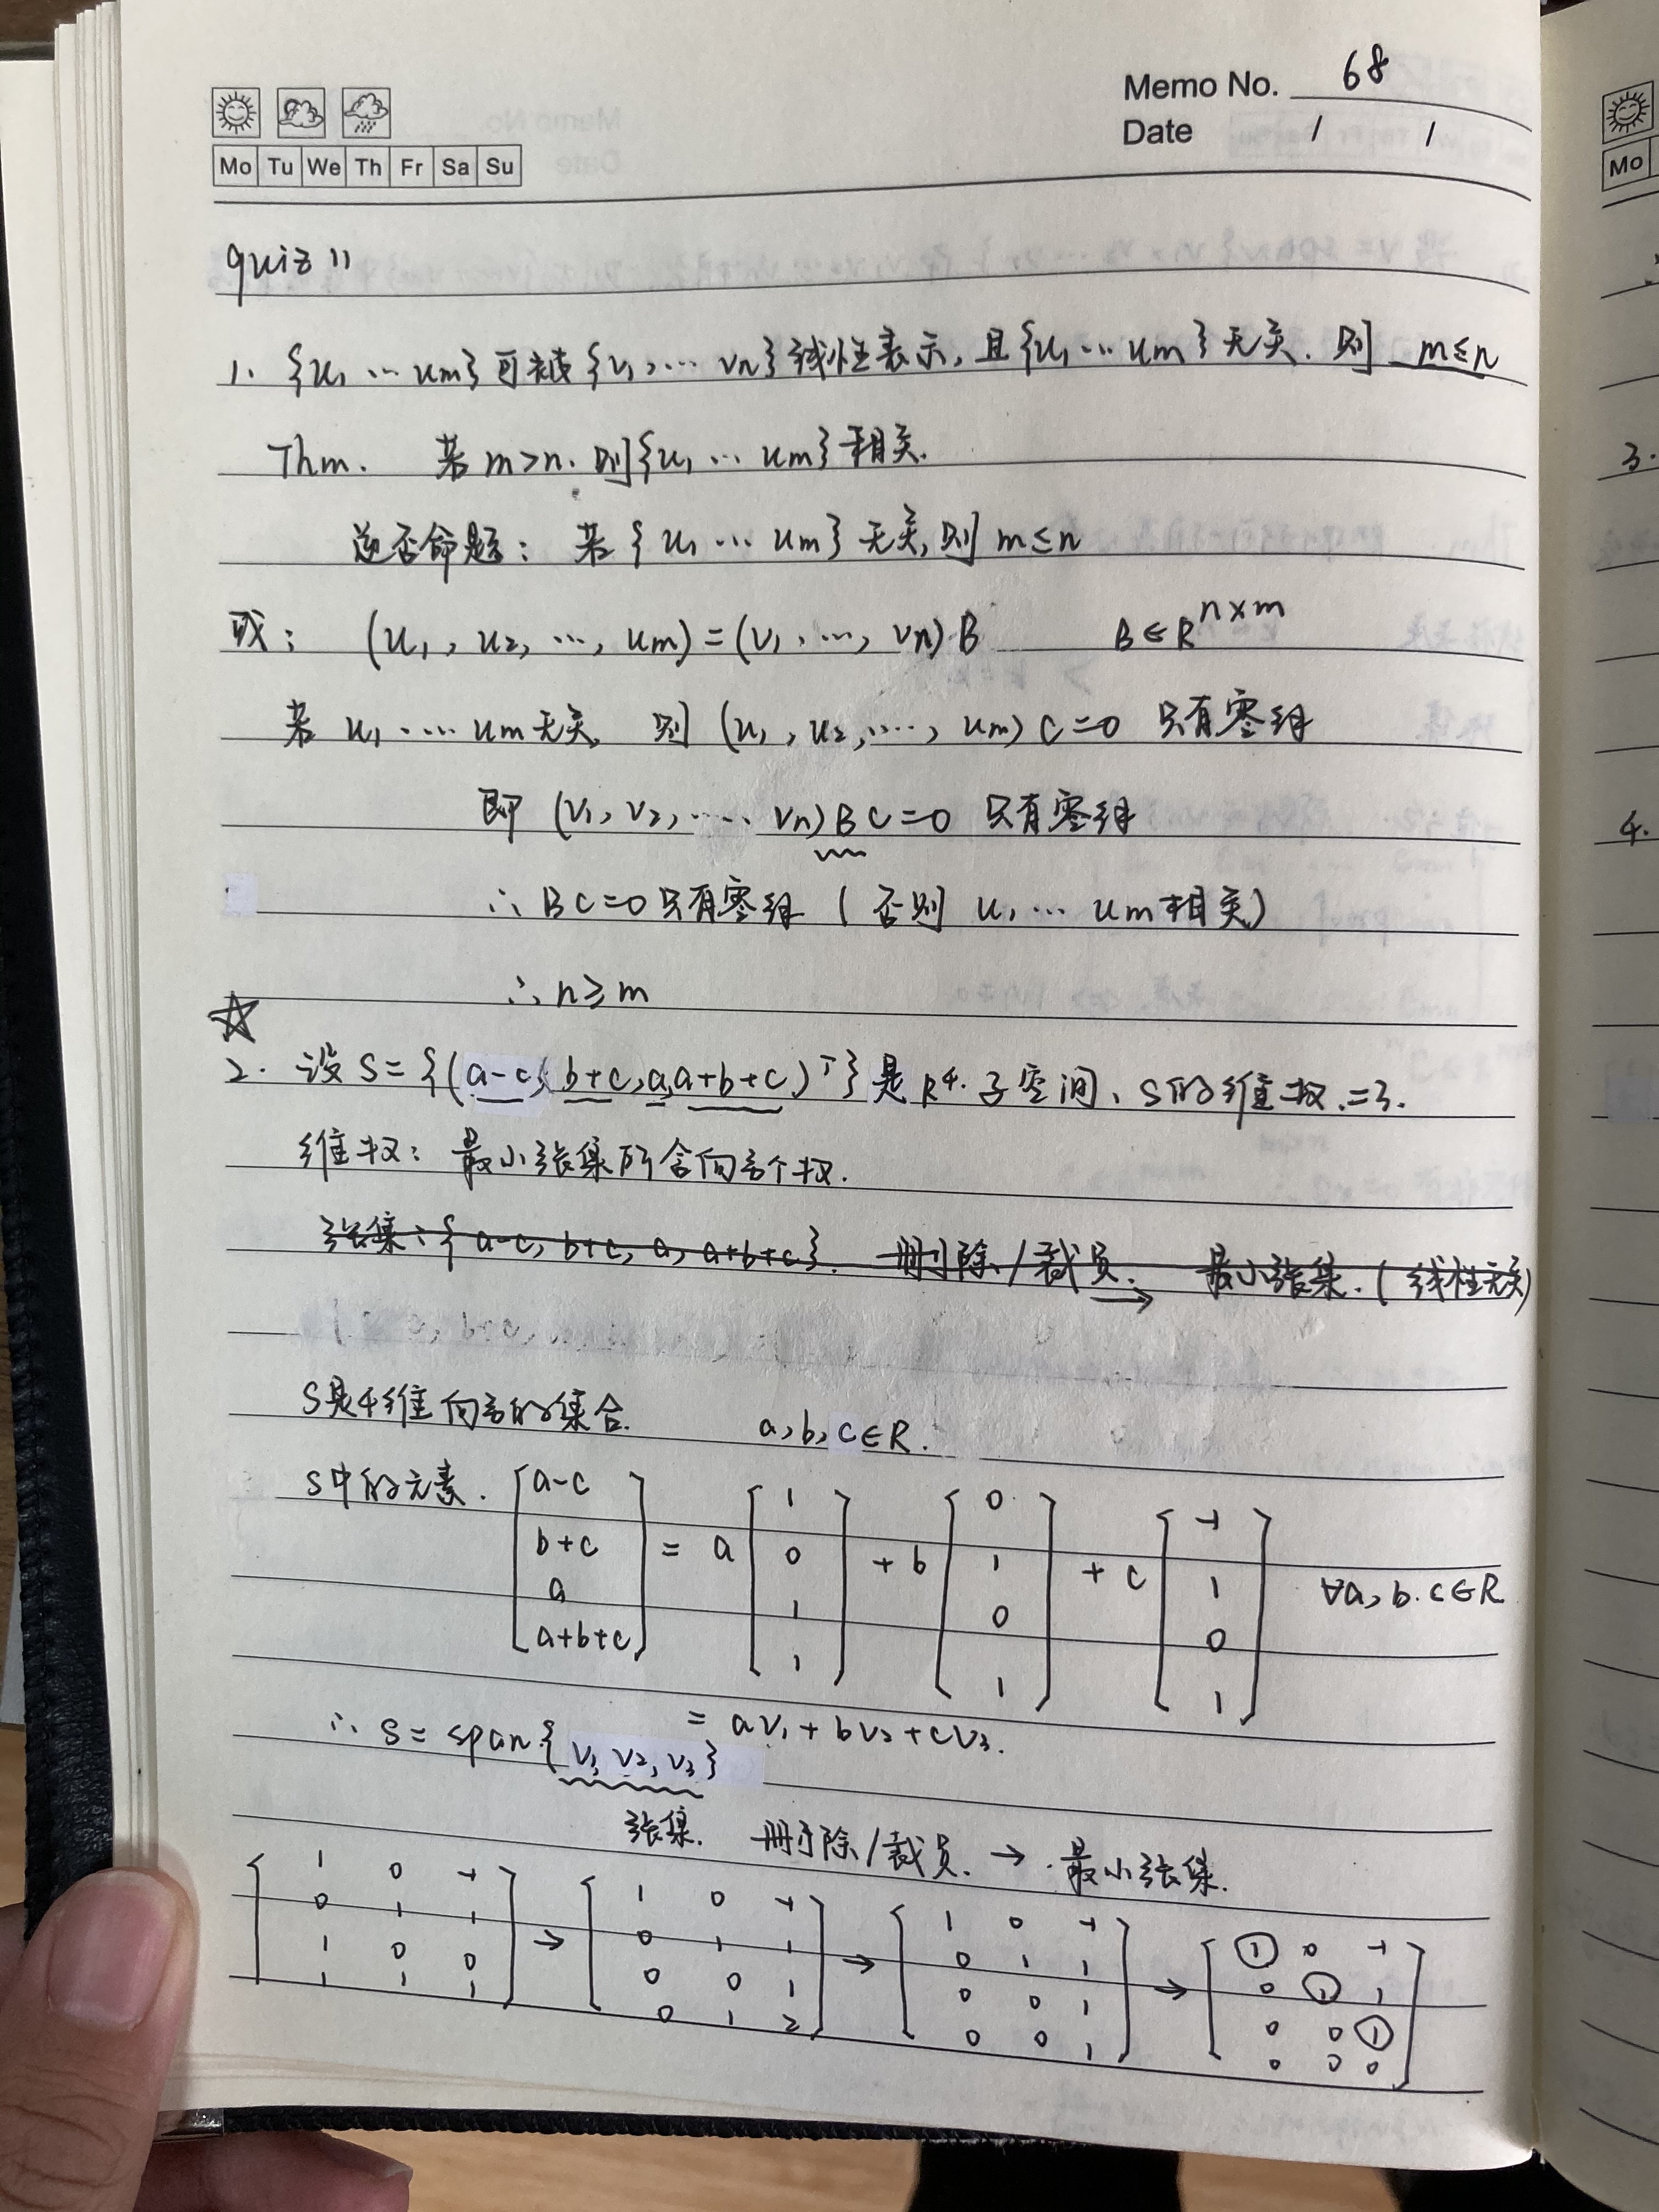 Memo No. 68
Date / /
Mo Tu We Th Fr Sa Su
quiz 11
1. {u₁ … um} 可被 {v₁, … vn} 线性表示, 且 {u₁ … um} 无关. 则 m≤n
Thm. 若 m>n. 则 {u₁ … um} 相关.
逆否命题: 若 {u₁ … um} 无关, 则 m≤n
或: (u₁, u₂, …, um) = (v₁, …, vn) B B∈R^{n×m}
若 u₁ … um 无关, 则 (u₁, u₂, …, um) C=0 只有零解
即 (v₁, v₂, … vn) B C=0 只有零解
∴ BC=0 只有零解 (否则 u₁ … um 相关)
∴ n≥m
☆
2. 设 S={(a-c, b+c, a, a+b+c)ᵀ} 是 R⁴. 子空间, S的维数.=3.
维数: 最小张集所含向量个数.
张集: {a-c, b+c, a, a+b+c}. 删除/裁员. → 最小张集. (线性无关)
S是4维向量的集合. a, b, c∈R.
S中的元素. [a-c b+c a a+b+c] = a [1 0 1 1] + b [0 1 0 1] + c [-1 1 0 1] ∀a, b. c∈R
= av₁ + bv₂ + cv₃.
∴ S = span{v₁, v₂, v₃}
张集. 删除/裁员. → 最小张集.
[1 0 -1 → [1 0 -1 → [1 0 -1 → [1 0 -1
0 1 1 0 1 1 0 1 1 0 1 1
1 0 0 0 0 1 0 0 1 0 0 1
1 1 1] 0 1 2] 0 0 1] 0 0 0]
Mo
3.
4.